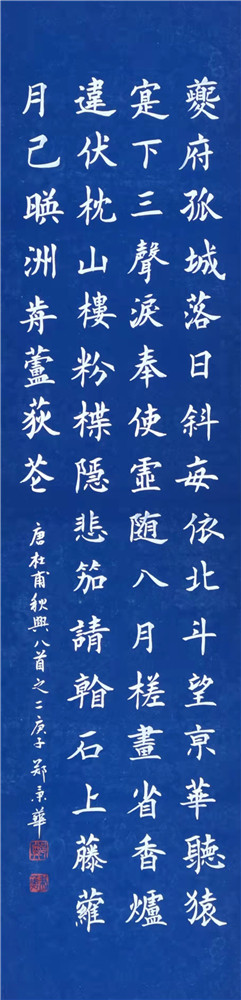 夔府孤城落日斜每依北斗望京華聽猿
寔下三聲淚奉使虛随八月槎畫省香爐
違伏枕山樓粉堞隱悲笳請看石上藤蘿
月已暎洲前蘆荻花
唐杜甫秋興八首之二庚子鄭華